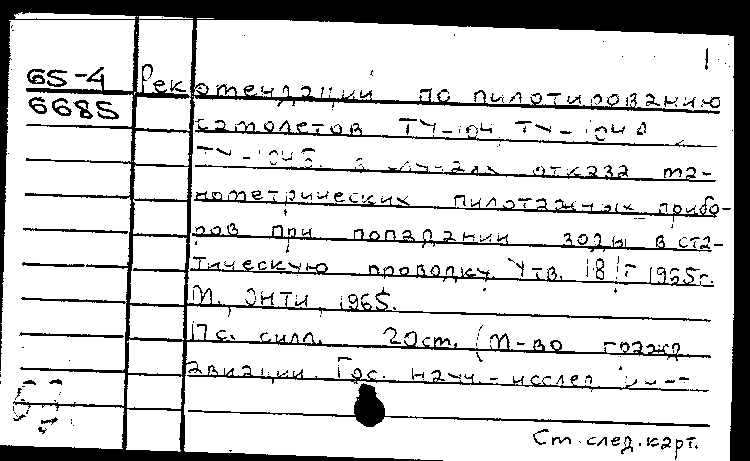 1
65-4 Рекомендации по пилотированию
6685 самолетов ТУ-104, ТУ-104А
ТУ-104Б в случаях отказа ма-
нометрических пилотажных прибо-
ров при попадании воды в ста-
тическую проводку. Утв. 18/I 1965г.
М., ОНТИ, 1965.
17с. с илл. 20см. (М-во гражд.
авиации. Гос. науч.-исслед. ин-т
См. след. карт.